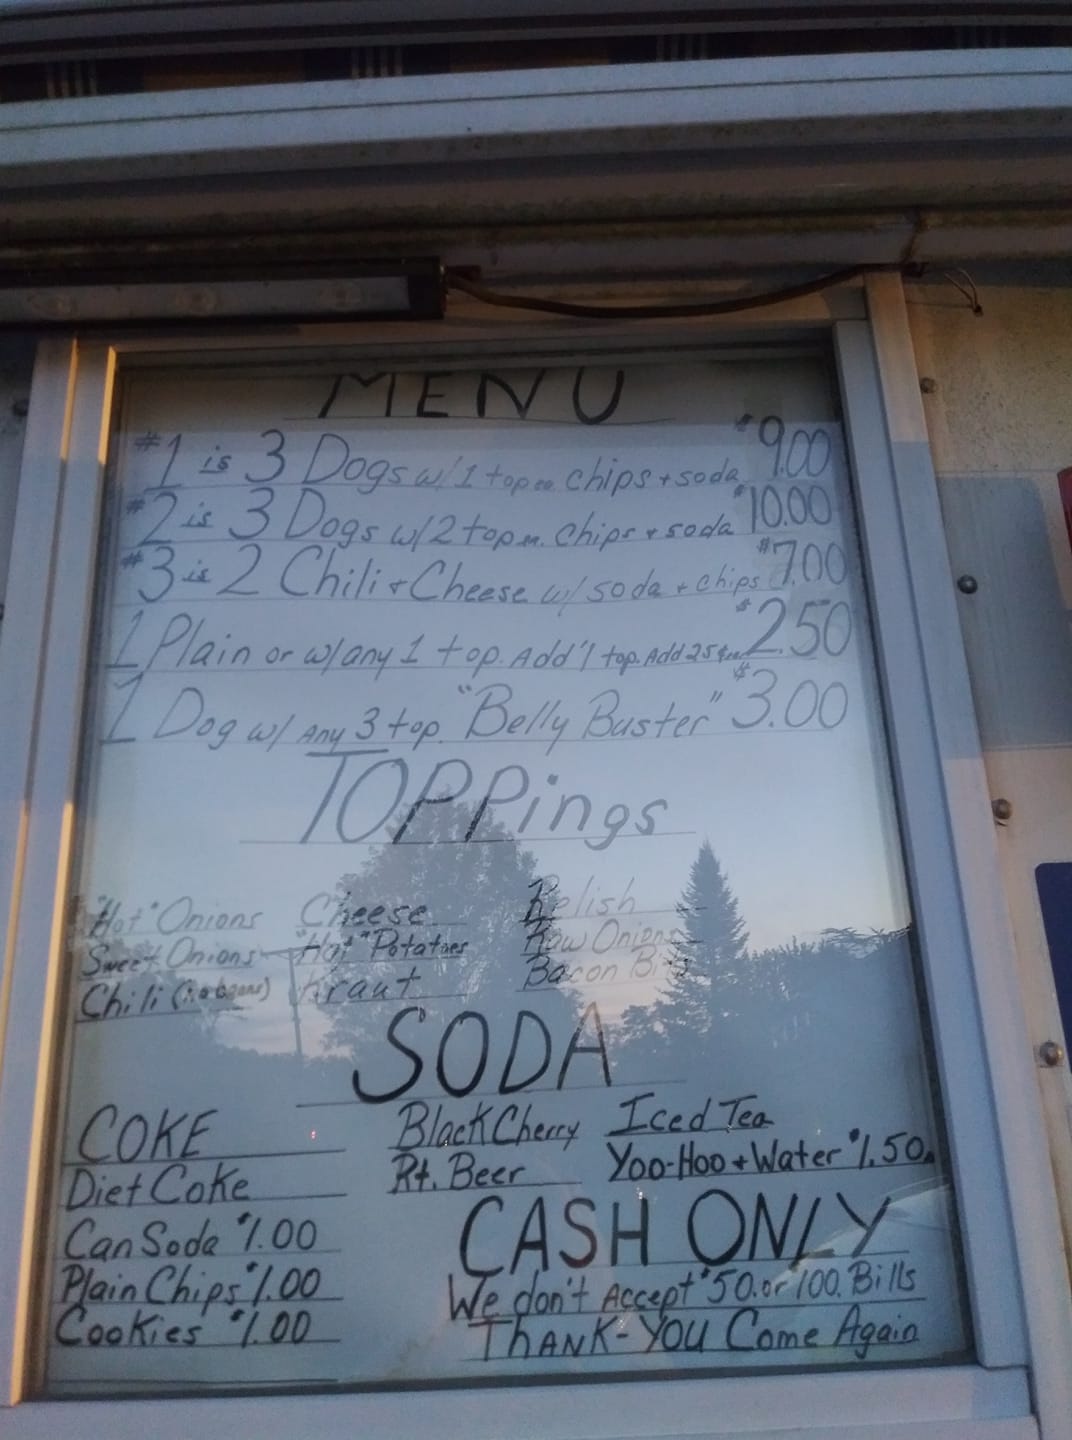 MENU
#1 is 3 Dogs w/ 1 top chips + soda $9.00
#2 is 3 Dogs w/ 2 top chips + soda $10.00
#3 is 2 Chili + Cheese w/ soda + chips $7.00
1 Plain or w/ any 1 top. Add'l top. Add 25¢ $2.50
1 Dog w/ Any 3 top. "Belly Buster" $3.00
TOPPings
"Hot" Onions Cheese Relish
Sweet Onions "Hot" Potatoes Raw Onions
Chili (no beans) Kraut Bacon Bits
SODA
COKE Black Cherry Iced Tea
Diet Coke Rt. Beer Yoo-Hoo + Water $1.50
Can Soda $1.00
Plain Chips $1.00
Cookies $1.00
CASH ONLY
We don't Accept $50. or $100. Bills
THANK-YOU Come Again